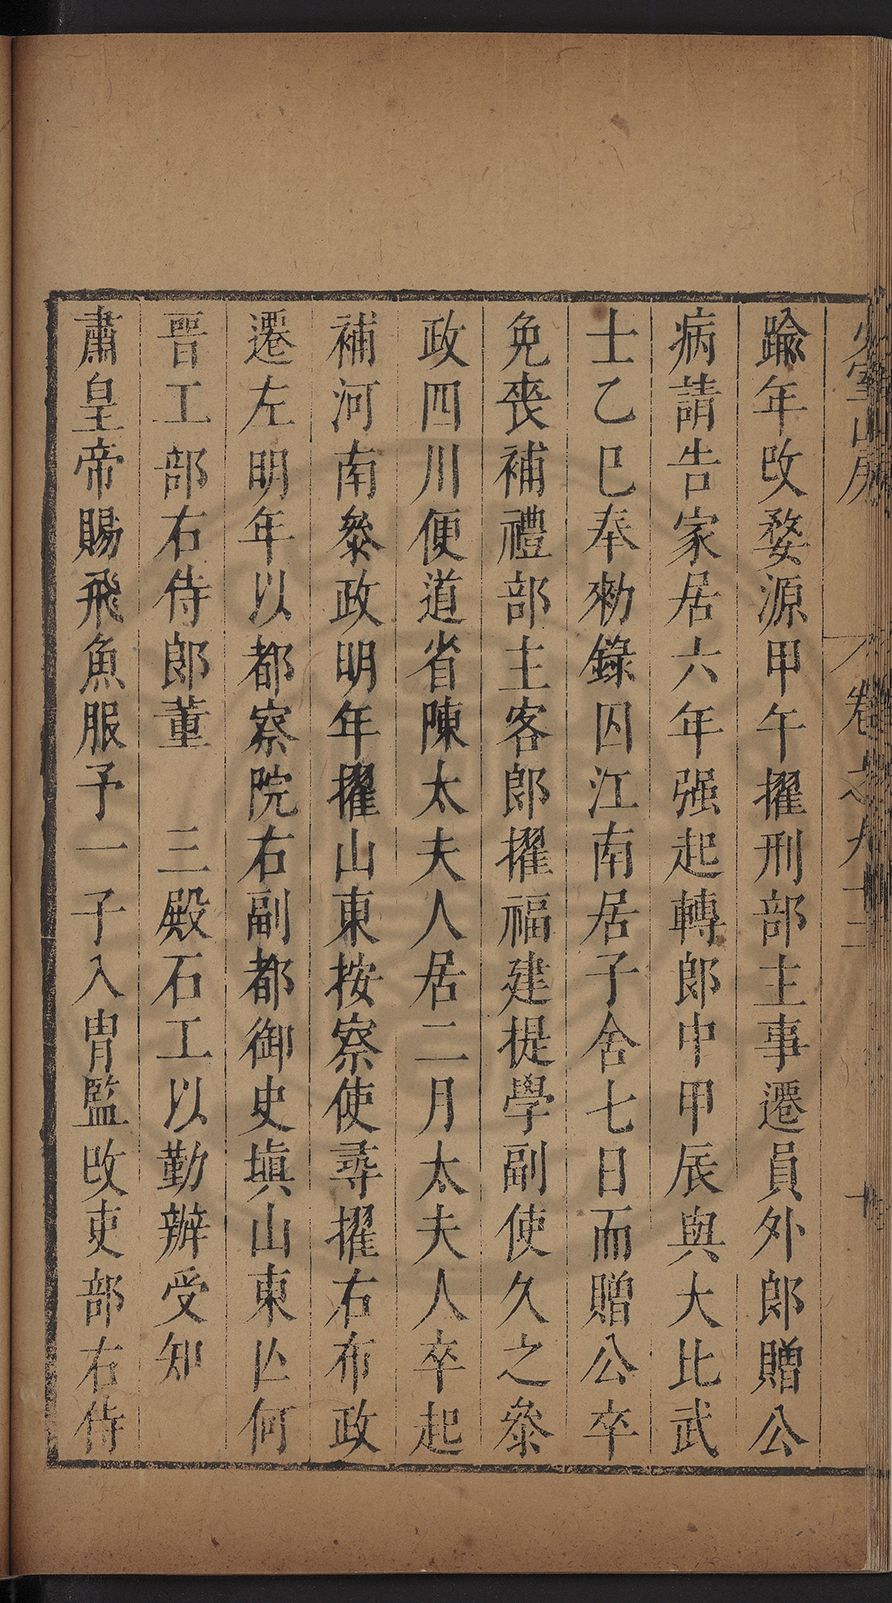 少室山房  卷之九十三  十
踰年改婺源甲午擢刑部主事遷員外郎贈公
病請告家居六年强起轉郎中甲辰與大比武
士乙巳奉勑錄囚江南居子舍七日而贈公卒
免喪補禮部主客郎擢福建提學副使久之叅
政四川便道省陳太夫人居二月太夫人卒起
補河南叅政明年擢山東按察使尋擢右布政
遷左明年以都察院右副都御史塡山東亡何
晋工部右侍郎董　三殿石工以勤辦受知
肅皇帝賜飛魚服予一子入胄監改吏部右侍